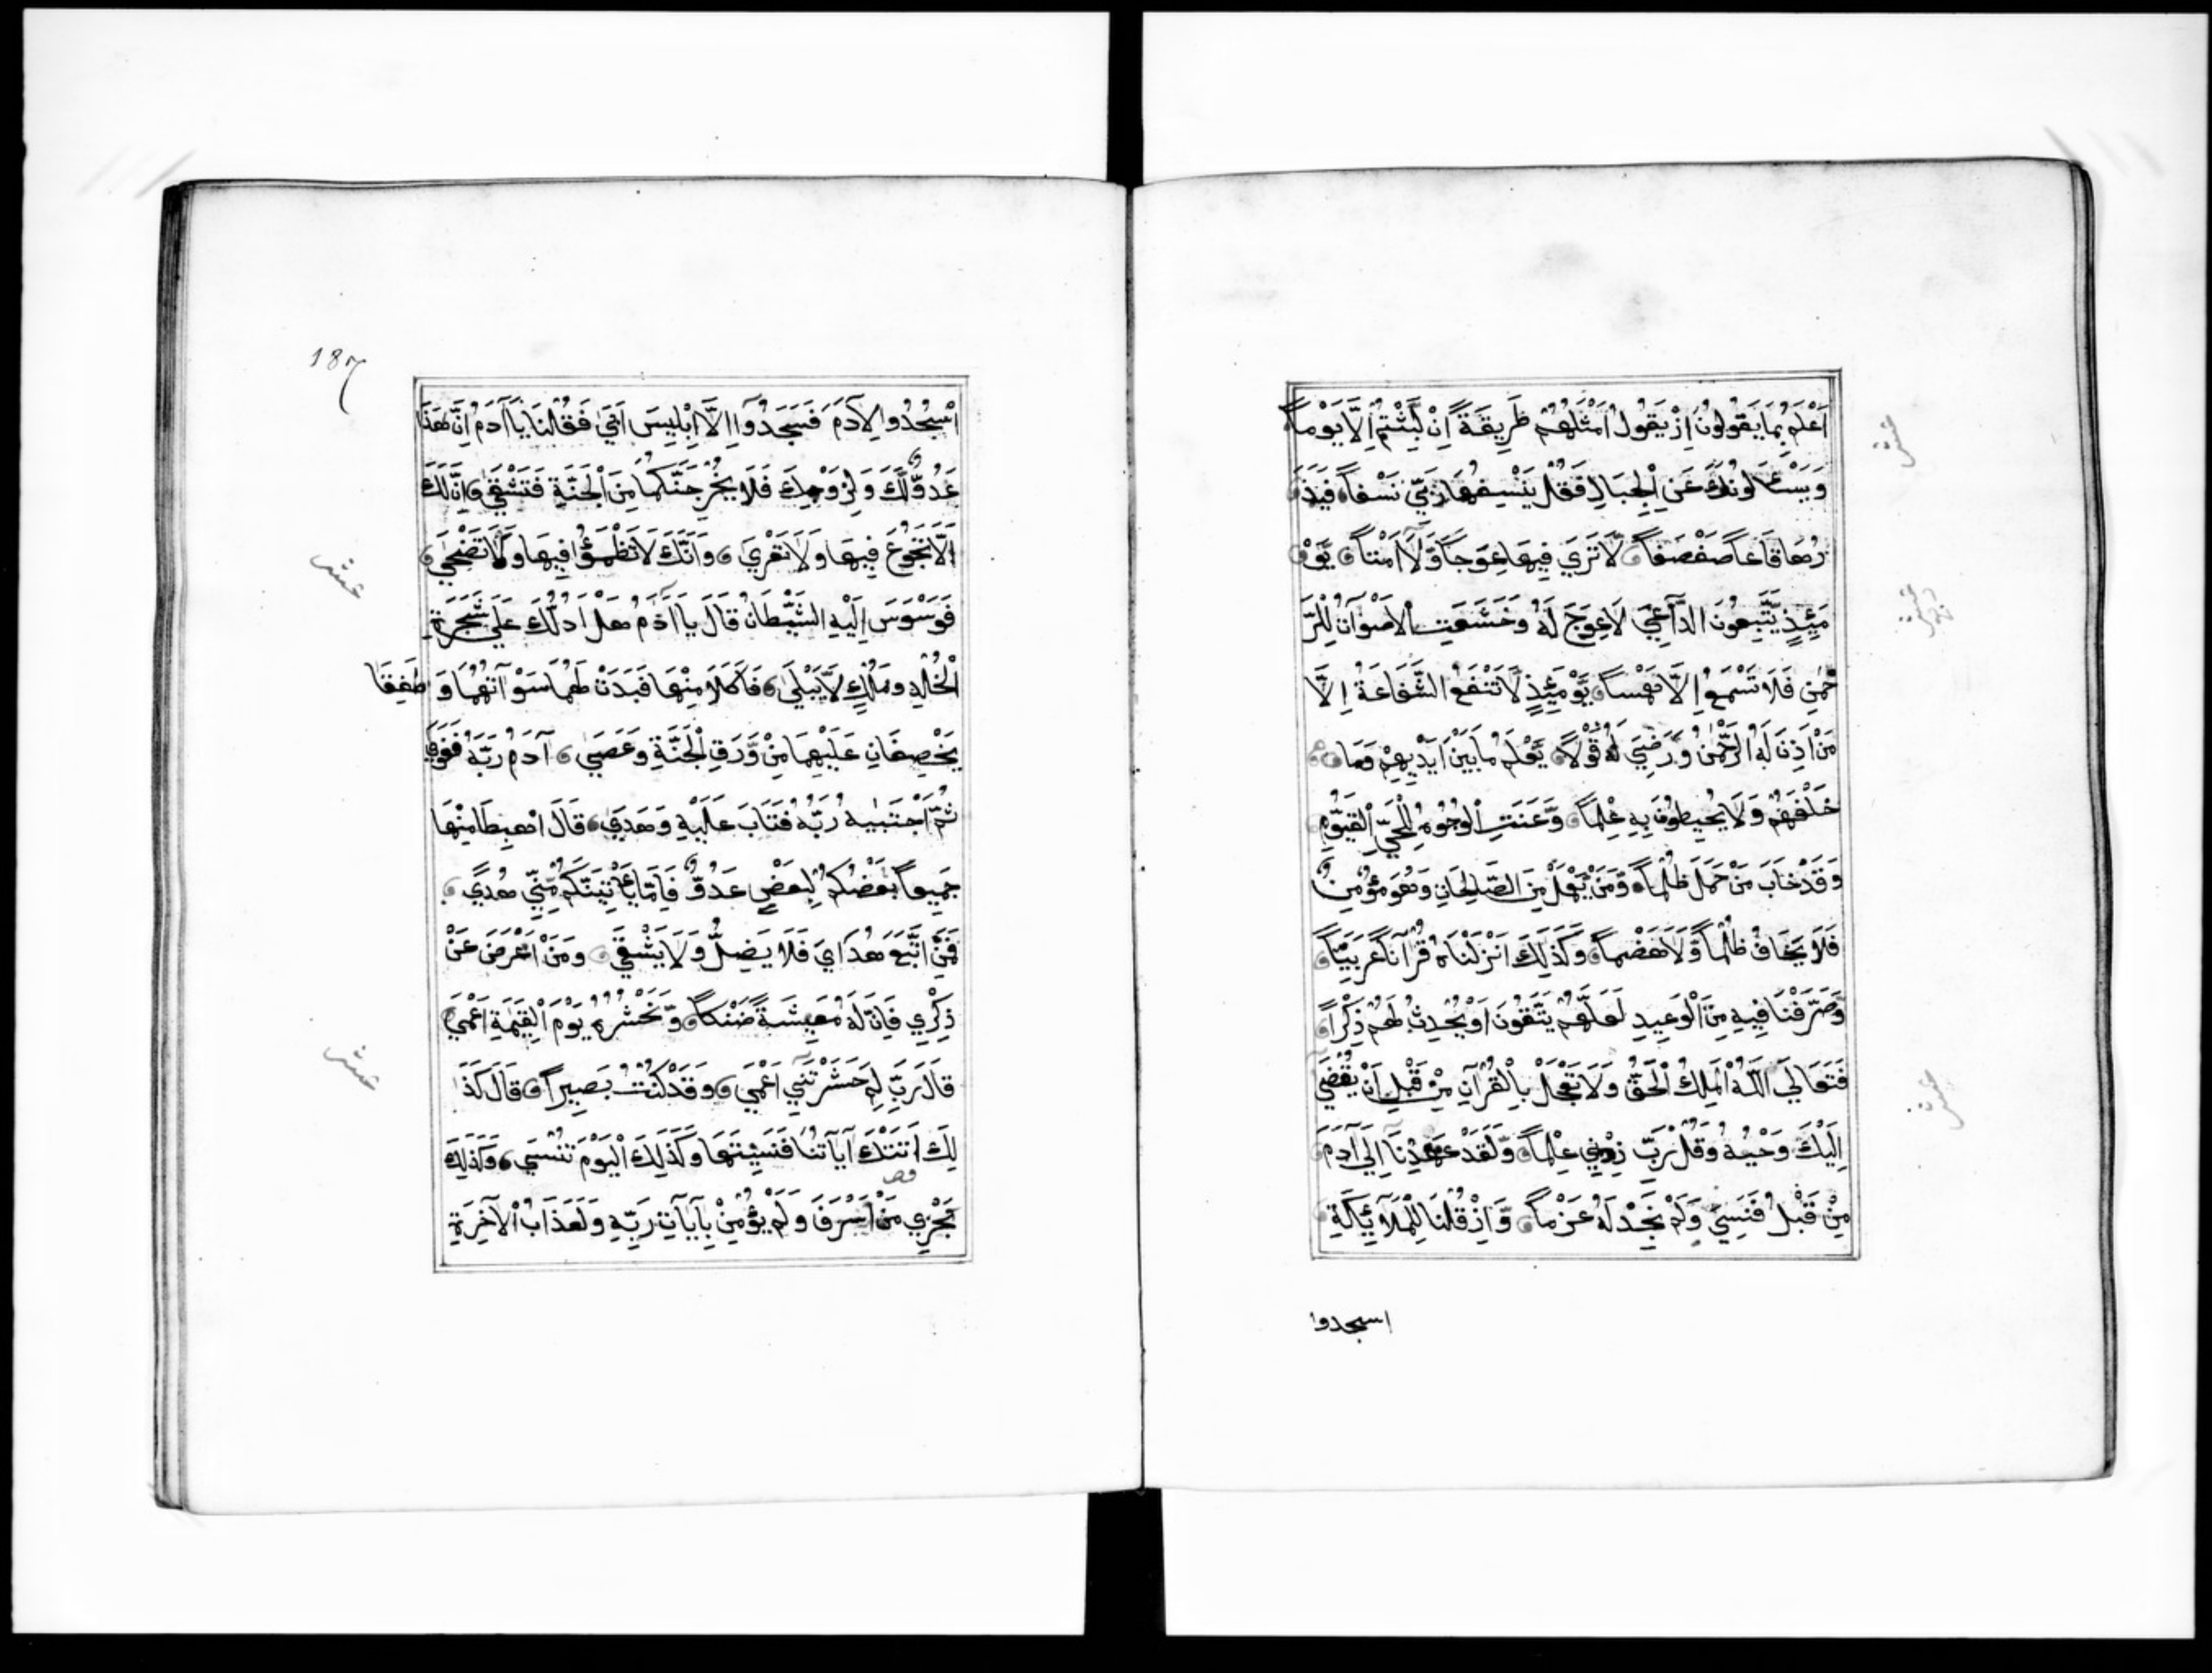 اَعْلَمُ بِمَا يَقُولُونَ اِذْ يَقُولُ اَمْثَلُهُمْ طَرِيقَةً اِنْ لَبِثْتُمْ اِلَّا يَوْماً
وَيَسْئَلُونَكَ عَنِ الْجِبَالِ فَقُلْ يَنْسِفُهَا رَبِّي نَسْفاً فَيَذَ
رُهَا قَاعاً صَفْصَفاً لَا تَرَي فِيهَا عِوَجاً وَّلَآ اَمْتاً يَوْ
مَئِذٍ يَتَّبِعُونَ الدَّاعِيَ لَا عِوَجَ لَهُ وَخَشَعَتِ الْاَصْوَاتُ لِلرَّ
حْمٰنِ فَلَا تَسْمَعُ اِلَّا هَمْساً يَوْمَئِذٍ لَا تَنْفَعُ الشَّفَاعَةُ اِلَّا
مَنْ اَذِنَ لَهُ الرَّحْمٰنُ وَرَضِيَ لَهُ قَوْلاً يَعْلَمُ مَا بَيْنَ اَيْدِيهِمْ وَمَا
خَلْفَهُمْ وَلَا يُحِيطُونَ بِهِ عِلْماً وَّعَنَتِ الْوُجُوهُ لِلْحَيِّ الْقَيُّومِ
وَقَدْ خَابَ مَنْ حَمَلَ ظُلْماً وَّمَنْ يَعْمَلْ مِنَ الصَّالِحَاتِ وَهُوَ مُؤْمِنٌ
فَلَا يَخَافُ ظُلْماً وَّلَا هَضْماً وَكَذَلِكَ اَنْزَلْنَاهُ قُرْآناً عَرَبِيّاً
وَّصَرَّفْنَا فِيهِ مِنَ الْوَعِيدِ لَعَلَّهُمْ يَتَّقُونَ اَوْ يُحْدِثُ لَهُمْ ذِكْراً
فَتَعَالَي اللّٰهُ الْمَلِكُ الْحَقُّ وَلَا تَعْجَلْ بِالْقُرْآنِ مِنْ قَبْلِ اَنْ يُقْضَي
اِلَيْكَ وَحْيُهُ وَقُلْ رَبِّ زِدْنِي عِلْماً وَّلَقَدْ عَهِدْنَا اِلَي آدَمَ
مِنْ قَبْلُ فَنَسِيَ وَلَمْ نَجِدْ لَهُ عَزْماً وَّاِذْ قُلْنَا لِلْمَلَآئِكَةِ
اسجدوا
عشر
عشر
عشر
187
اسْجُدُوا لِآدَمَ فَسَجَدُوآ اِلَّا اِبْلِيسَ اَبَي فَقُلْنَا يَا آدَمُ اِنَّ هَذَا
عَدُوٌّ لَّكَ وَلِزَوْجِكَ فَلَا يُخْرِجَنَّكُمَا مِنَ الْجَنَّةِ فَتَشْقَي اِنَّ لَكَ
اَلَّا تَجُوعَ فِيهَا وَلَا تَعْرَي وَاَنَّكَ لَا تَظْمَؤُا فِيهَا وَلَا تَضْحَي
فَوَسْوَسَ اِلَيْهِ الشَّيْطَانُ قَالَ يَا آدَمُ هَلْ اَدُلُّكَ عَلَي شَجَرَةِ
الْخُلْدِ وَمُلْكٍ لَّا يَبْلَي فَاَكَلَا مِنْهَا فَبَدَتْ لَهُمَا سَوْآتُهُمَا وَطَفِقَا
يَخْصِفَانِ عَلَيْهِمَا مِنْ وَّرَقِ الْجَنَّةِ وَعَصَي آدَمُ رَبَّهُ فَغَوَي
ثُمَّ اجْتَبَيهُ رَبُّهُ فَتَابَ عَلَيْهِ وَهَدَي قَالَ اهْبِطَا مِنْهَا
جَمِيعاً بَعْضُكُمْ لِبَعْضٍ عَدُوٌّ فَاِمَّا يَأْتِيَنَّكُمْ مِّنِّي هُدًي
فَمَنِ اتَّبَعَ هُدَايَ فَلَا يَضِلُّ وَلَا يَشْقَي وَمَنْ اَعْرَضَ عَنْ
ذِكْرِي فَاِنَّ لَهُ مَعِيشَةً ضَنْكاً وَّنَحْشُرُهُ يَوْمَ الْقِيٰمَةِ اَعْمَي
قَالَ رَبِّ لِمَ حَشَرْتَنِي اَعْمَي وَقَدْ كُنْتُ بَصِيراً قَالَ كَذَ
لِكَ اَتَتْكَ آيَاتُنَا فَنَسِيتَهَا وَكَذَلِكَ الْيَوْمَ تُنْسَي وَكَذَلِكَ
نَجْزِي مَنْ اَسْرَفَ وَلَمْ يُؤْمِنْ بِآيَاتِ رَبِّهِ وَلَعَذَابُ الْآخِرَةِ
عشر
عشر